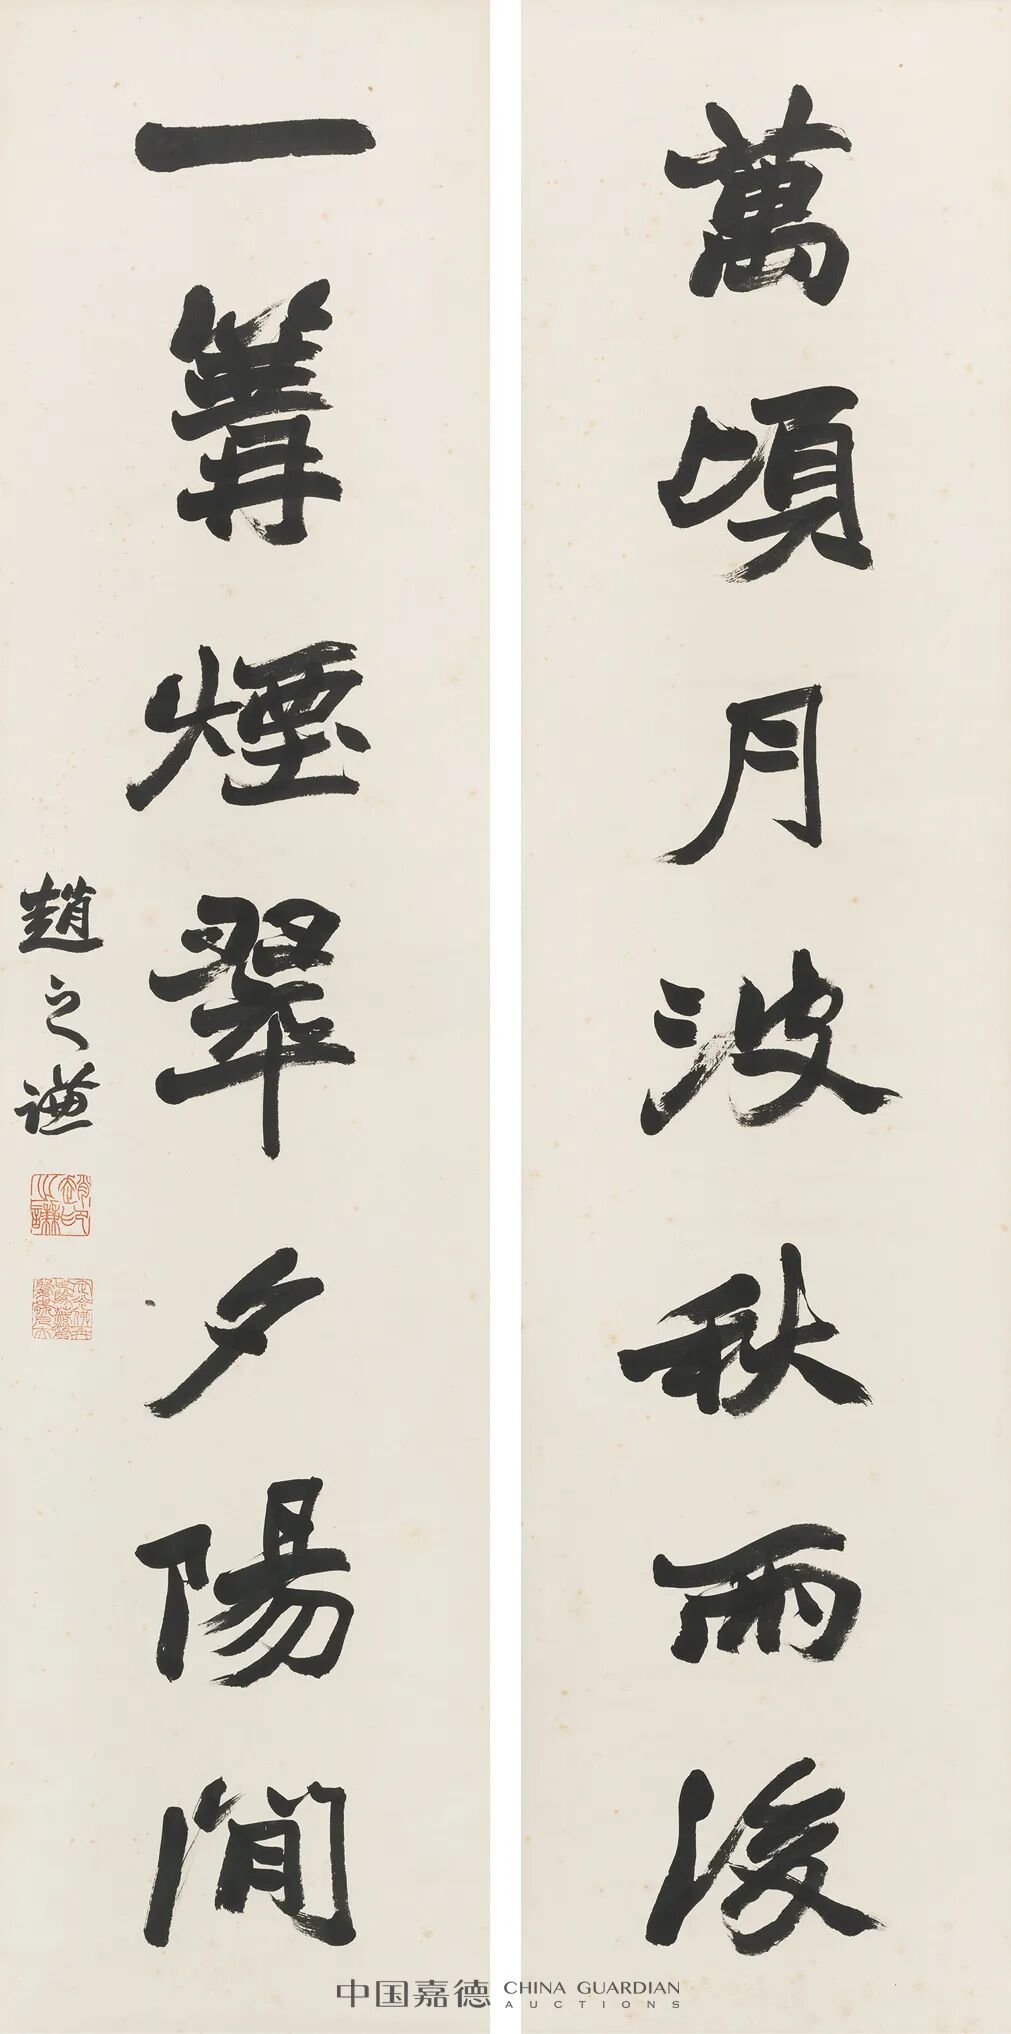 萬頃月波秋雨後
一篝煙翠夕陽間
趙之謙
中国嘉德 CHINA GUARDIAN
AUCTIONS